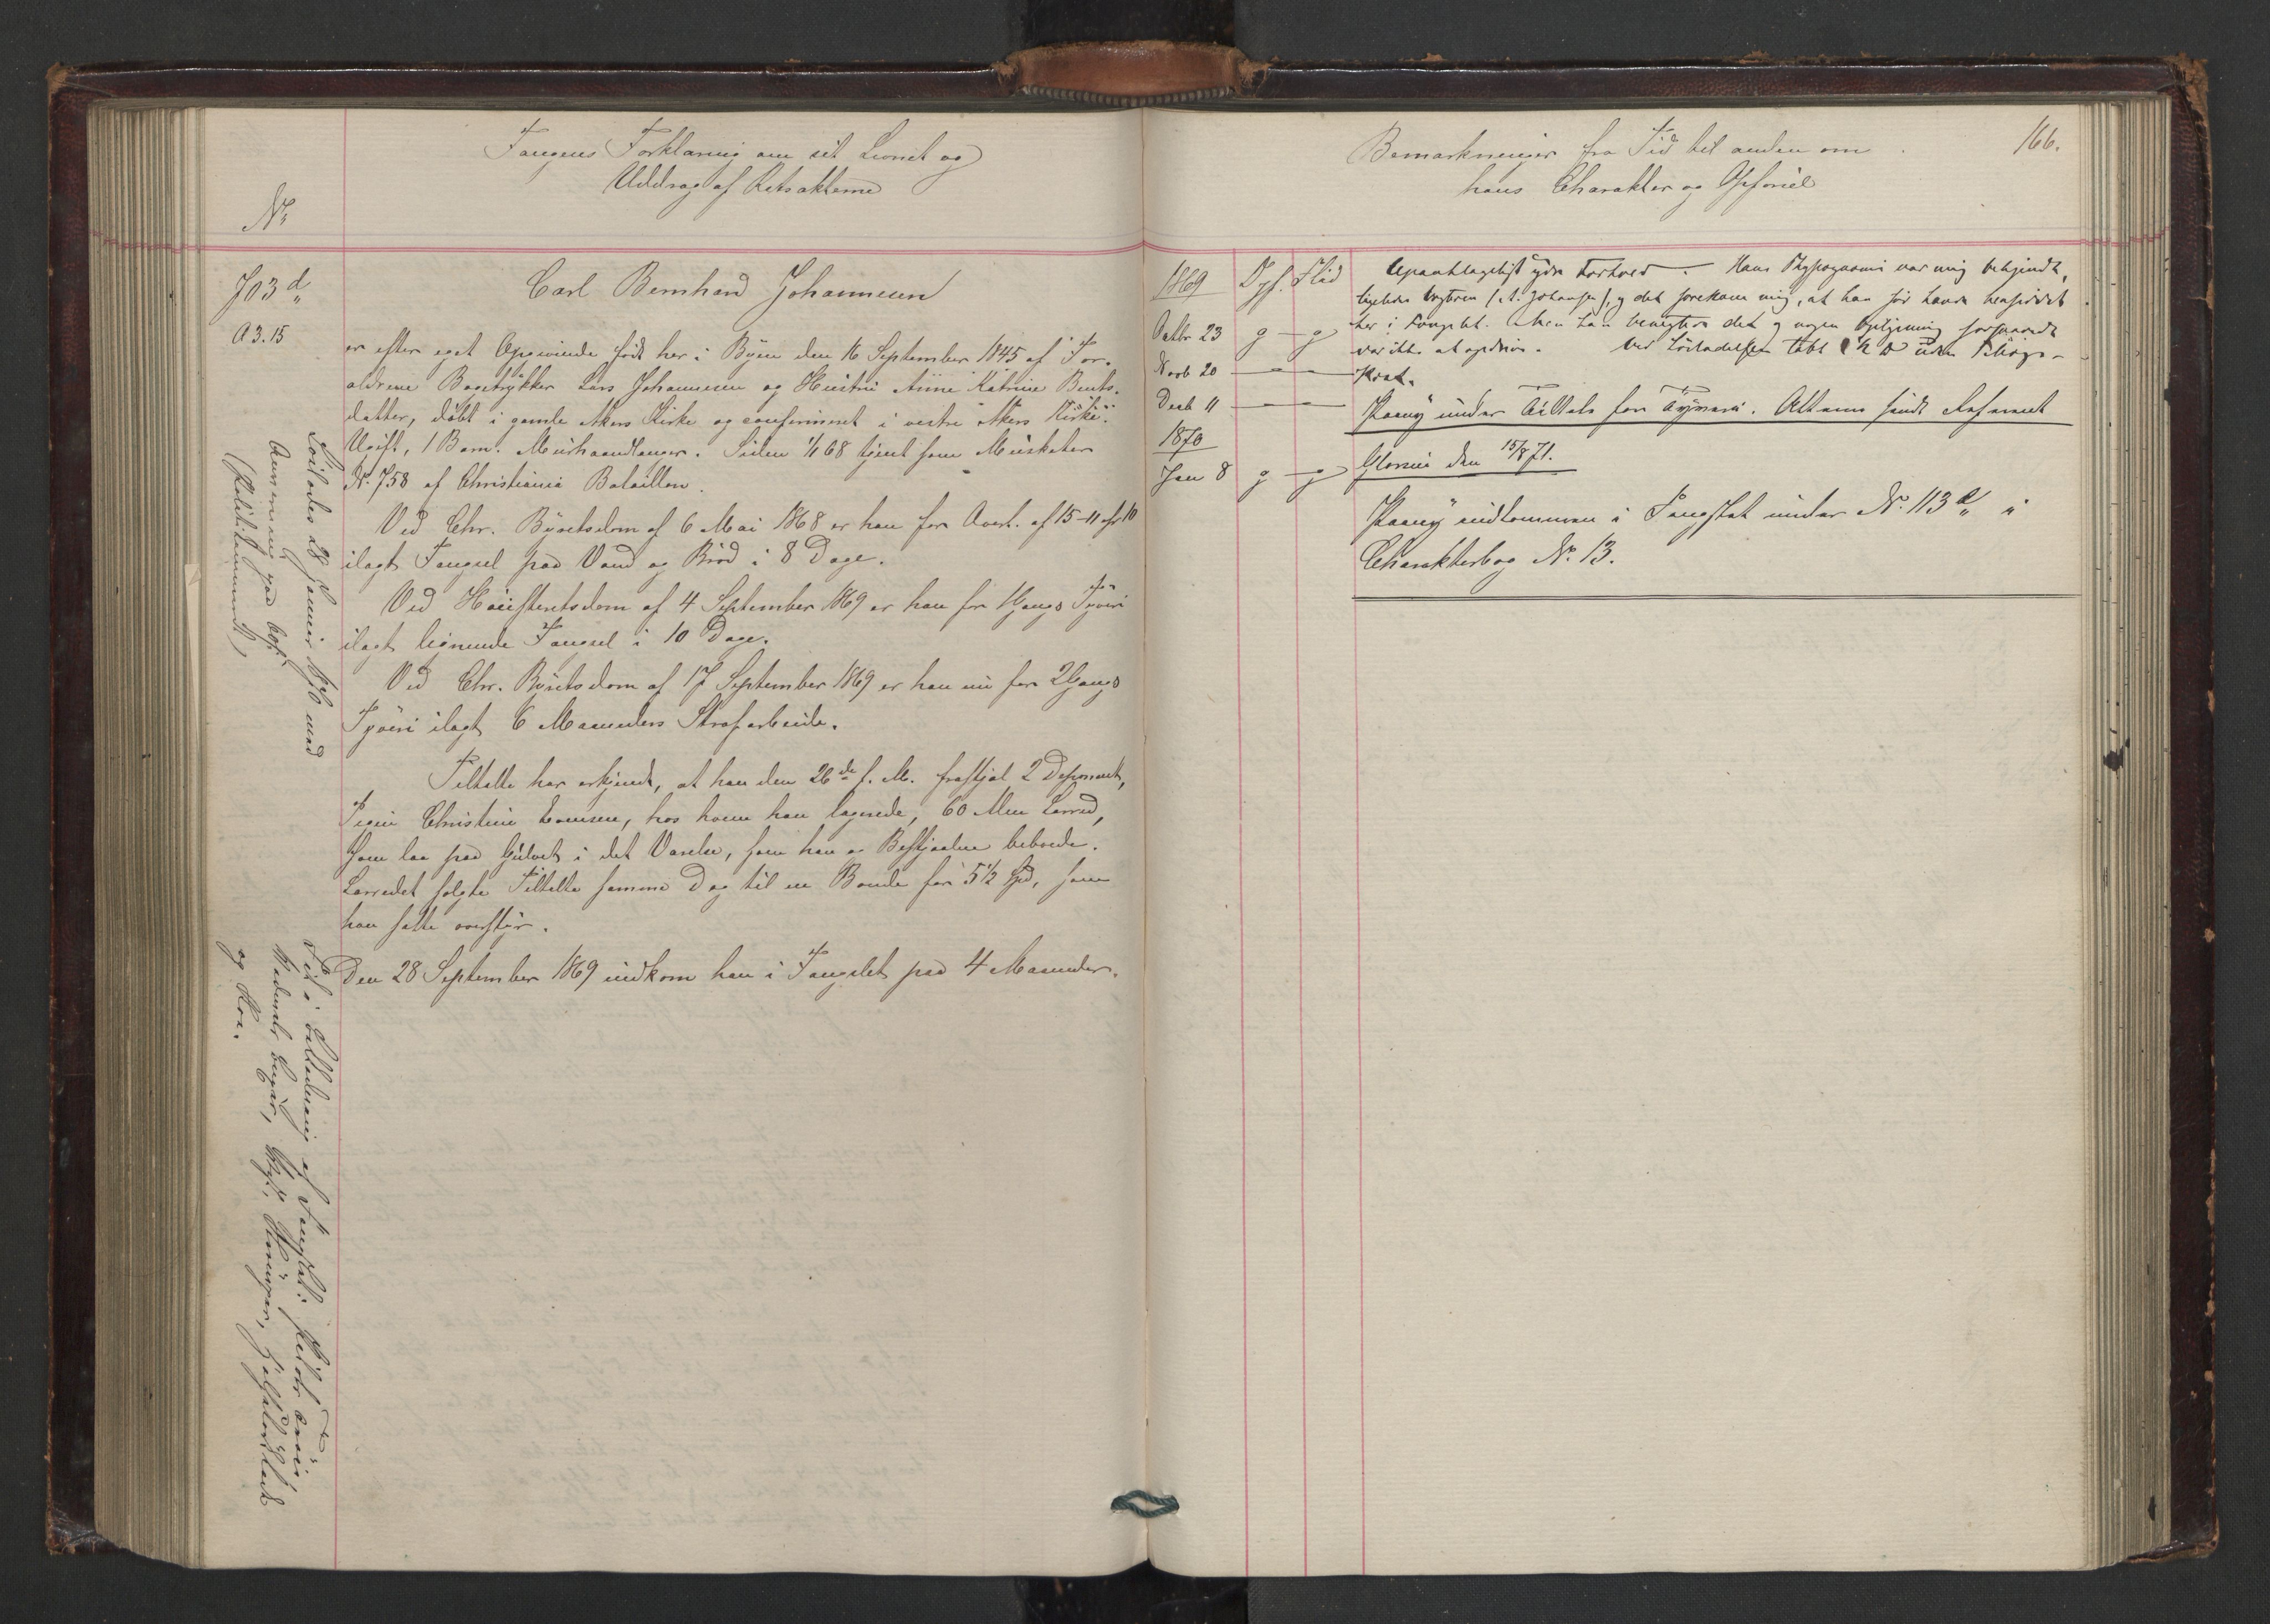 Fangens Forklaring om sit Levnet og
Uddrag af Retsakterne
No
703 d„
A 3. 15
Carl Bernhard Johannesen
er efter eget Opgivende født her i Byen den 16 September 1845 af For-
ældrene Bogtrykker Lars Johannesen og Hustru Anne Katrine Bents-
datter, døbt i gamle Akers Kirke og confirmeret i vestre Akers Kirke.
Ugift, 1 Barn. Murhaandlanger. Siden 1/1 68 tjent som Musketer
No. 758 af Christiania Bataillon.
Ved Chr. Byretsdom af 6 Mai 1868 er han for Overt. af 15-11 cfr 10
ilagt Fængsel paa Vand og Brød i 8 Dage.
Ved Høiesteretsdom af 4 September 1869 er han for 1 Gangs Tyveri
ilagt lignende Fængsel i 10 Dage.
Ved Chr. Byretsdom af 17 September 1869 er han nu for 2 Gangs
Tyveri ilagt 6 Maaneders Strafarbeide.
Tiltalte har erkjendt, at han den 26de f. M. frastjal
Pigen Christine hos hvem han logerede, 60 Alen Lærred,
som laa paa Gulvet i det Værelse, som han og Bestjaalne beboede.
Lærredet solgte Tiltalte samme Dag til en Bonde for 5 1/2 Spd, som
han satte overstyr.
Den 28 September 1869 indkom han i Fængslet paa 4 Maaneder.
Løslades 28 Januar 1870 med
Anvisning paa
(Politikammeret)
Tid i Anledning af Fængslet:
og Kone.
Bemærkninger fra Tid til anden om
hans Charakter og Opførsel
166.
1869 Opf. Flid
Octbr 23 g — g
Novb 20 — —
Decb 11 — —
1870
Jan 8 g — g
Upaaklageligt ydre Forhold. — Hans Physiognomi var mig bekjendt,
ligeledes og det forekom mig, at han før havde hensiddet
her i Fængslet. Men han benegtede det og nogen Oplysning
var ikke at opdrive. Ved Løsladelsen tabt
Paany under Tiltale for Tyveri. Attester sendt
den 15/8 71.
Paany indkommen i Fængslet under No. 113 d„ i
Charakterbog No. 13.